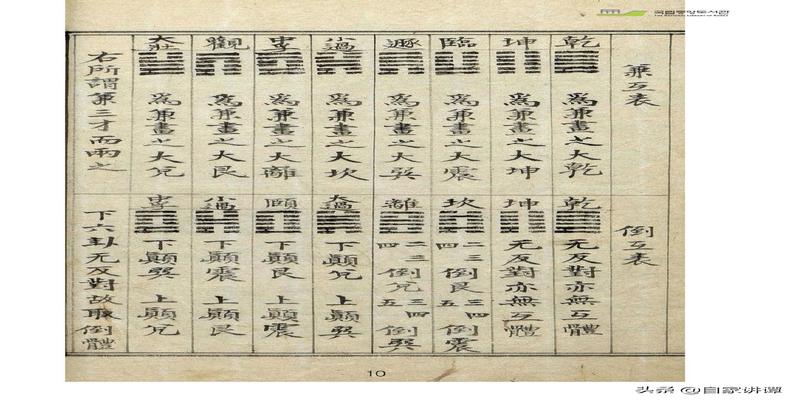 국립중앙도서관
THE NATIONAL LIBRARY OF KOREA
兼互表
倒互表
乾
爲兼畫之大乾
坤
爲兼畫之大坤
臨
爲兼畫之大震
遯
爲兼畫之大巽
小過
爲兼畫之大坎
中孚
爲兼畫之大離
觀
爲兼畫之大艮
大壯
爲兼畫之大兌
右所謂兼三才而兩之
乾
无反對亦無互體
坤
无反對亦無互體
坎
二三四倒艮 三四五倒震
離
二三四倒兌 三四五倒巽
大過
下顚兌 上顚巽
頤
下顚艮 上顚震
小過
下顚震 上顚艮
中孚
下顚巽 上顚兌
下六卦无反對故取倒體
10
头条 @自家讲谭